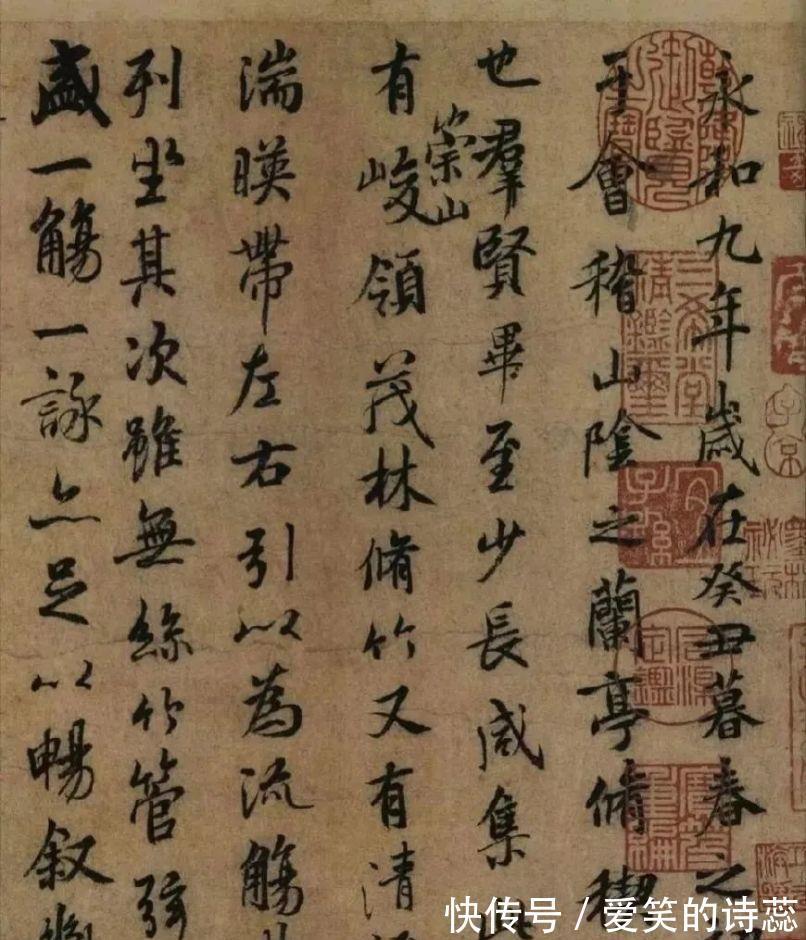 永和九年歲在癸丑暮春之
于會稽山陰之蘭亭脩稧
也羣賢畢至少長咸集
有崇山峻領茂林脩竹又有清
湍暎帶左右引以為流觴
列坐其次雖無絲竹管弦
盛一觴一詠亦足以暢叙
三希堂精鑑璽
宜子孫
快传号 / 爱笑的诗蕊